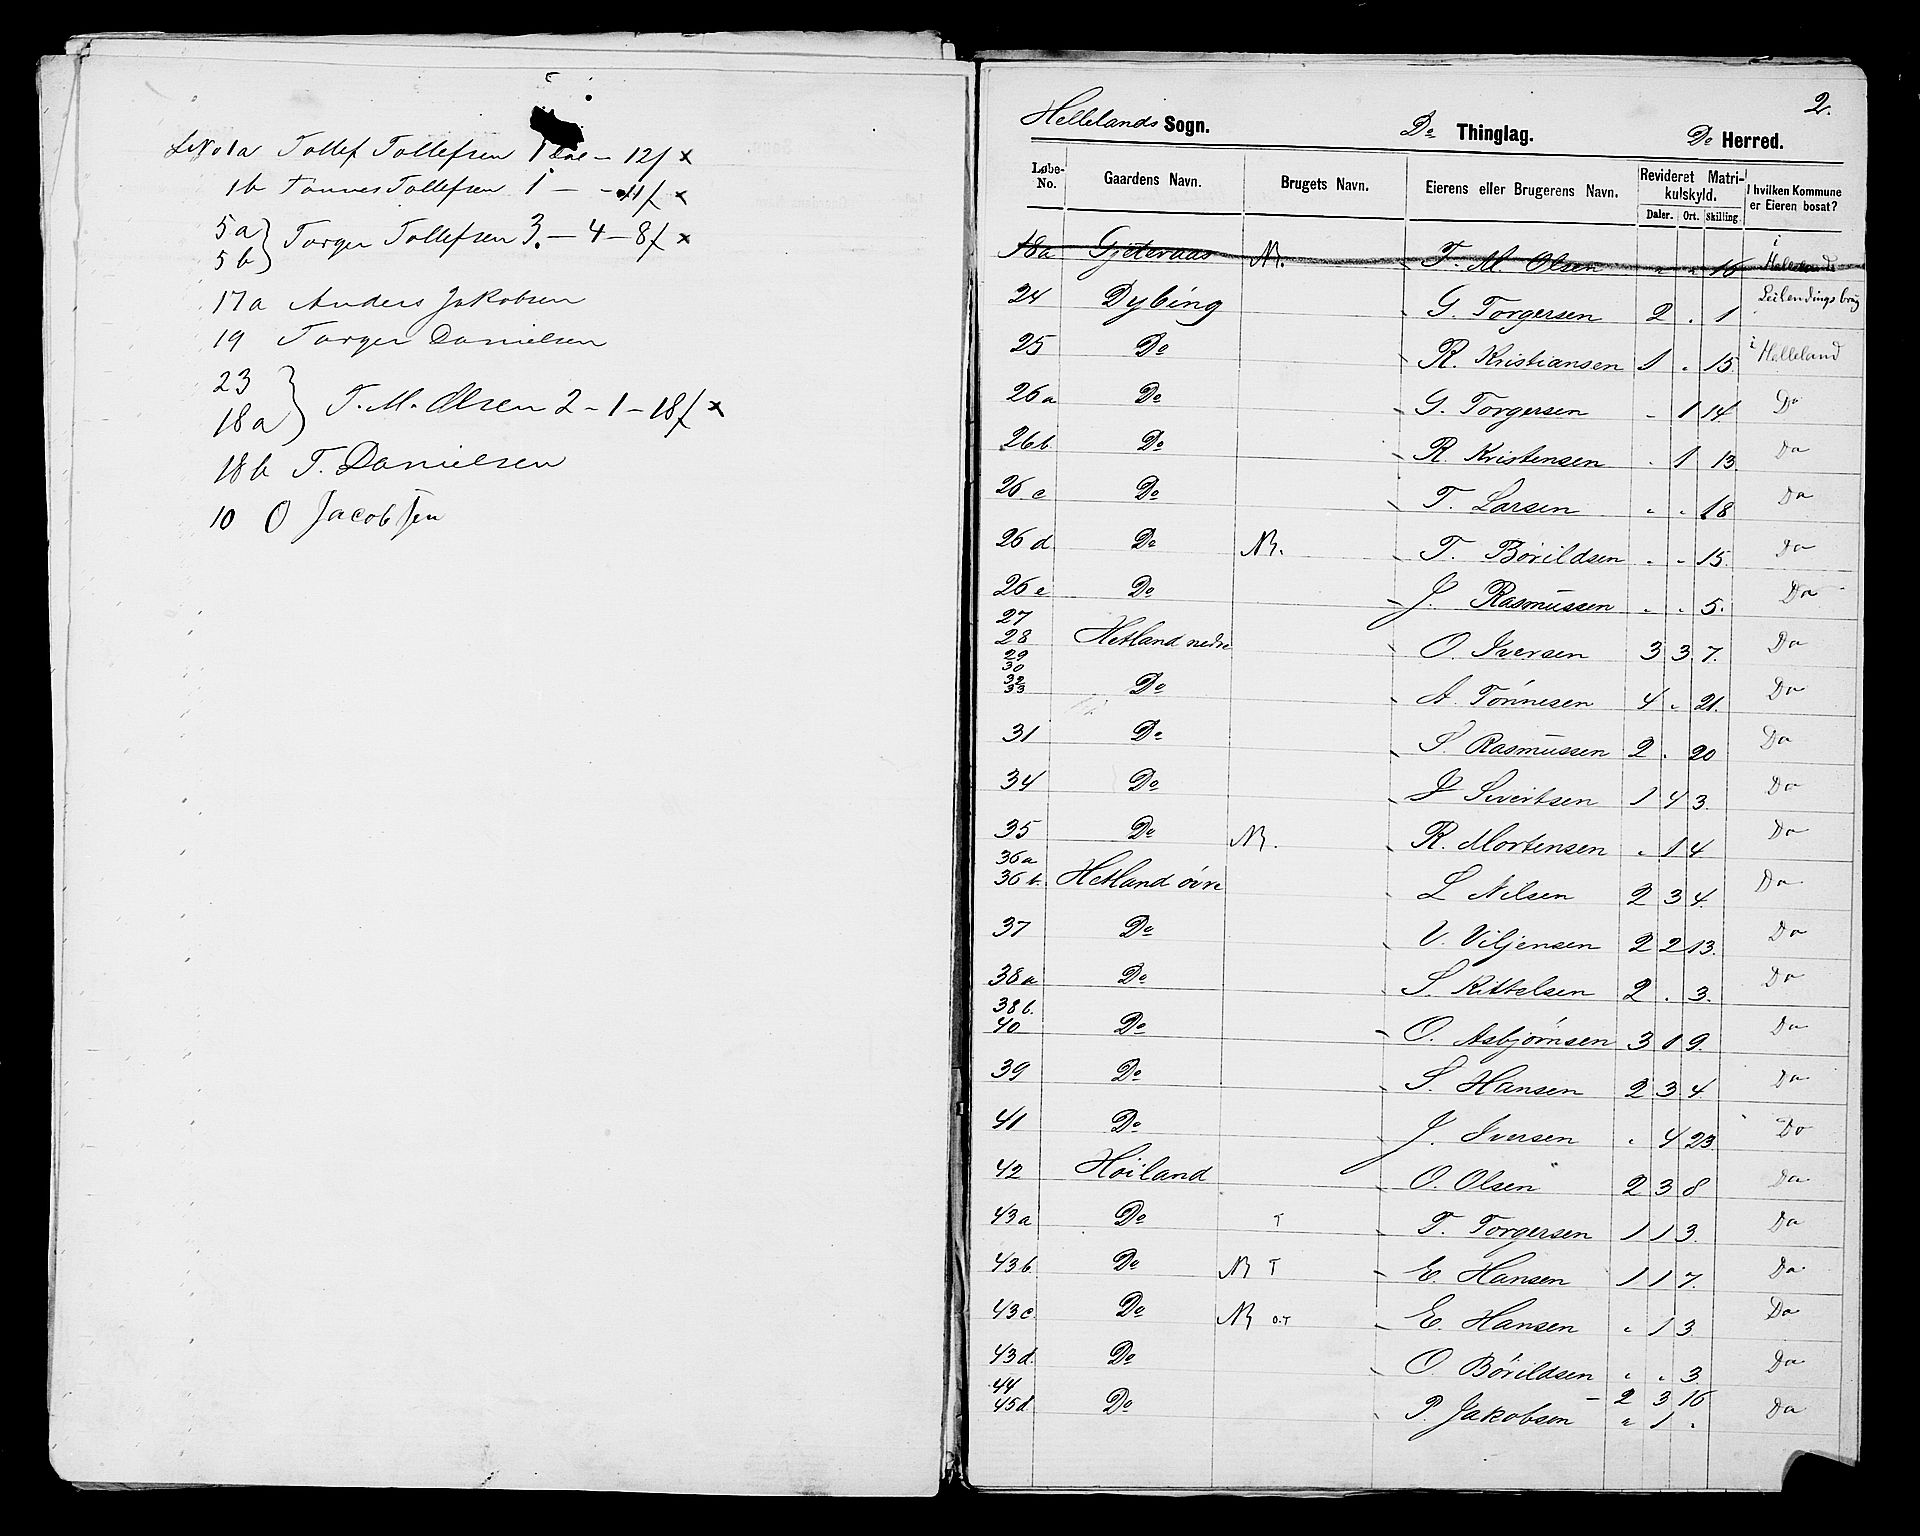 LNo 1a Tollef Tollefsen 1 Dal – 12/ x
1b Tonnes Tollefsen 1 – – 11/ x
5a } Torger Tollefsen 3. – 4 – 8/ x
5b
17a Anders Jakobsen
19 Torger Danielsen
23
18a } T. M. Olsen 2 – 1 – 18/ x
18b T. Danielsen
10 O Jacobsen
2.
Hellelands Sogn. Do Thinglag. Do Herred.
Løbe-No. Gaardens Navn. Brugets Navn. Eierens eller Brugerens Navn. Revideret Matrikulskyld. I hvilken Kommune er Eieren bosat?
Daler. Ort. Skilling
18a Gjeteraas N. T. M. Olsen " " 16 i Helleland
24 Dybing G. Torgersen 2 . 1 Leilendingsbrug
25 Do R. Kristiansen 1 " 15 i Helleland
26a Do G. Torgersen " 1 14. Do
26b. Do R. Kristensen " 1 13. Do
26c Do T. Larsen " " 18 Do
26d. Do N. T. Børildsen " " 15. Do
26e Do J. Rasmussen " " 5. Do
27
28 Hetland nedre O. Iversen 3 3 7. Do
29
30
32
33 Do A. Tønnesen 4 " 21. Do
31 Do S. Rasmussen 2 . 20 Do
34 Do Sivertsen 1 4 3. Do
35 Do N. R. Mortensen " 1 4 Do
36a
36b. Hetland øvre L Nilsen 2 3 4. Do
37 Do V. Viljensen 2 2 13. Do
38a Do S. Kittelsen 2 . 3. Do
38b.
40 Do O. Asbjørnsen 3 1 9. Do
39 Do S. Hansen 2 3 4 Do
41 Do J. Iversen " 4 23. Do
42 Høiland O. Olsen 2 3 8 Do
43a Do T T. Torgersen 1 1 3. Do
43b. Do N T E. Hansen 1 1 7. Do
43c. Do N O.T E. Hansen " 1 3. Do
43d. Do O. Børildsen " " 3. Do
44 2 3 16
45d. Do P. Jakobsen " 1 " Do